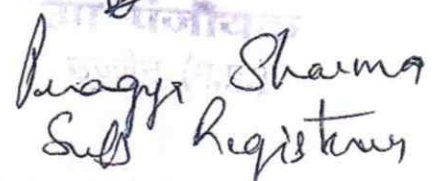 उप पंजीयक
Pragya Sharma
Sub Registrar